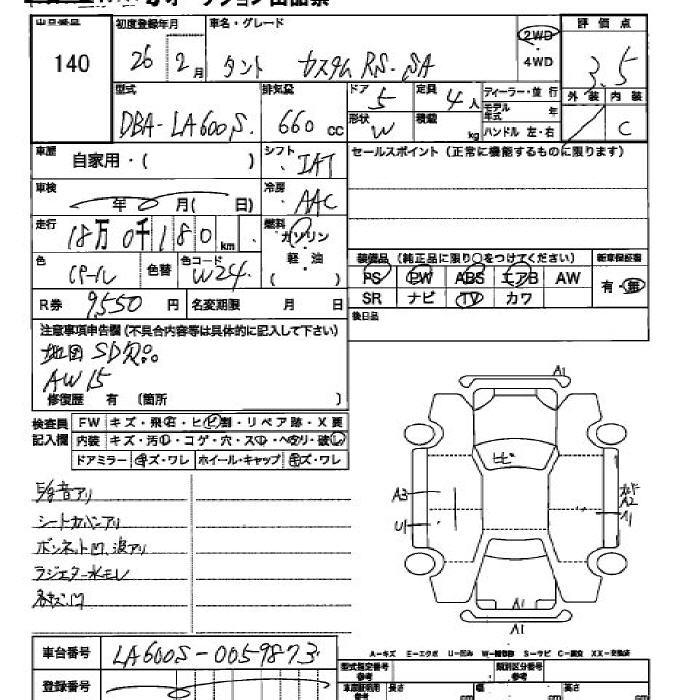 出品番号 初度登録年月 車名・グレード 評価点
140 26 2月 タント カスタム RS・SA 2WD・4WD 3.5
型式 排気量 ドア 5 定員 4人 ディーラー・並行 外装 内装
DBA-LA600S. 660 CC 形状 W 積載 kg モデル年式 年 C
ハンドル 左・右
車歴 自家用・( ) シフト IAT セールスポイント(正常に機能するものに限ります)
車検 年 月( 日) 冷房 AAC
走行 18万0千180km 燃料 ガソリン
軽・油
( )
色 パール 色替 色コード W24
装備品(純正品に限り○をつけてください) 新車保証書
PS PW ABS エアB AW 有・無
SR ナビ TV カワ
R券 9550円 名変期限 月 日
後日品
注意事項申告欄(不具合内容等は具体的に記入して下さい)
地図SD
AW15
修復歴 有 (箇所 )
検査員記入欄 FW キズ・飛石・ヒビ割・リペア跡・X要
内装 キズ・汚レ・コゲ・穴・スレ・ヘタリ・破レ
ドアミラー キズ・ワレ ホイール・キャップ キズ・ワレ
音アリ
シートカバーアリ
ボンネット凹、波アリ
ラジエター水モレ
A1
ヒビ
A3
U1
A2
A1
A1
A1
車台番号 LA600S-0059873
A-キズ E-エクボ U-凹み W-補修跡 S-サビ C-腐食 XX-交換済
登録番号
型式指定番号 参考 類別区分番号 参考
車庫証明用 参考 長さ cm 幅 cm 高さ cm